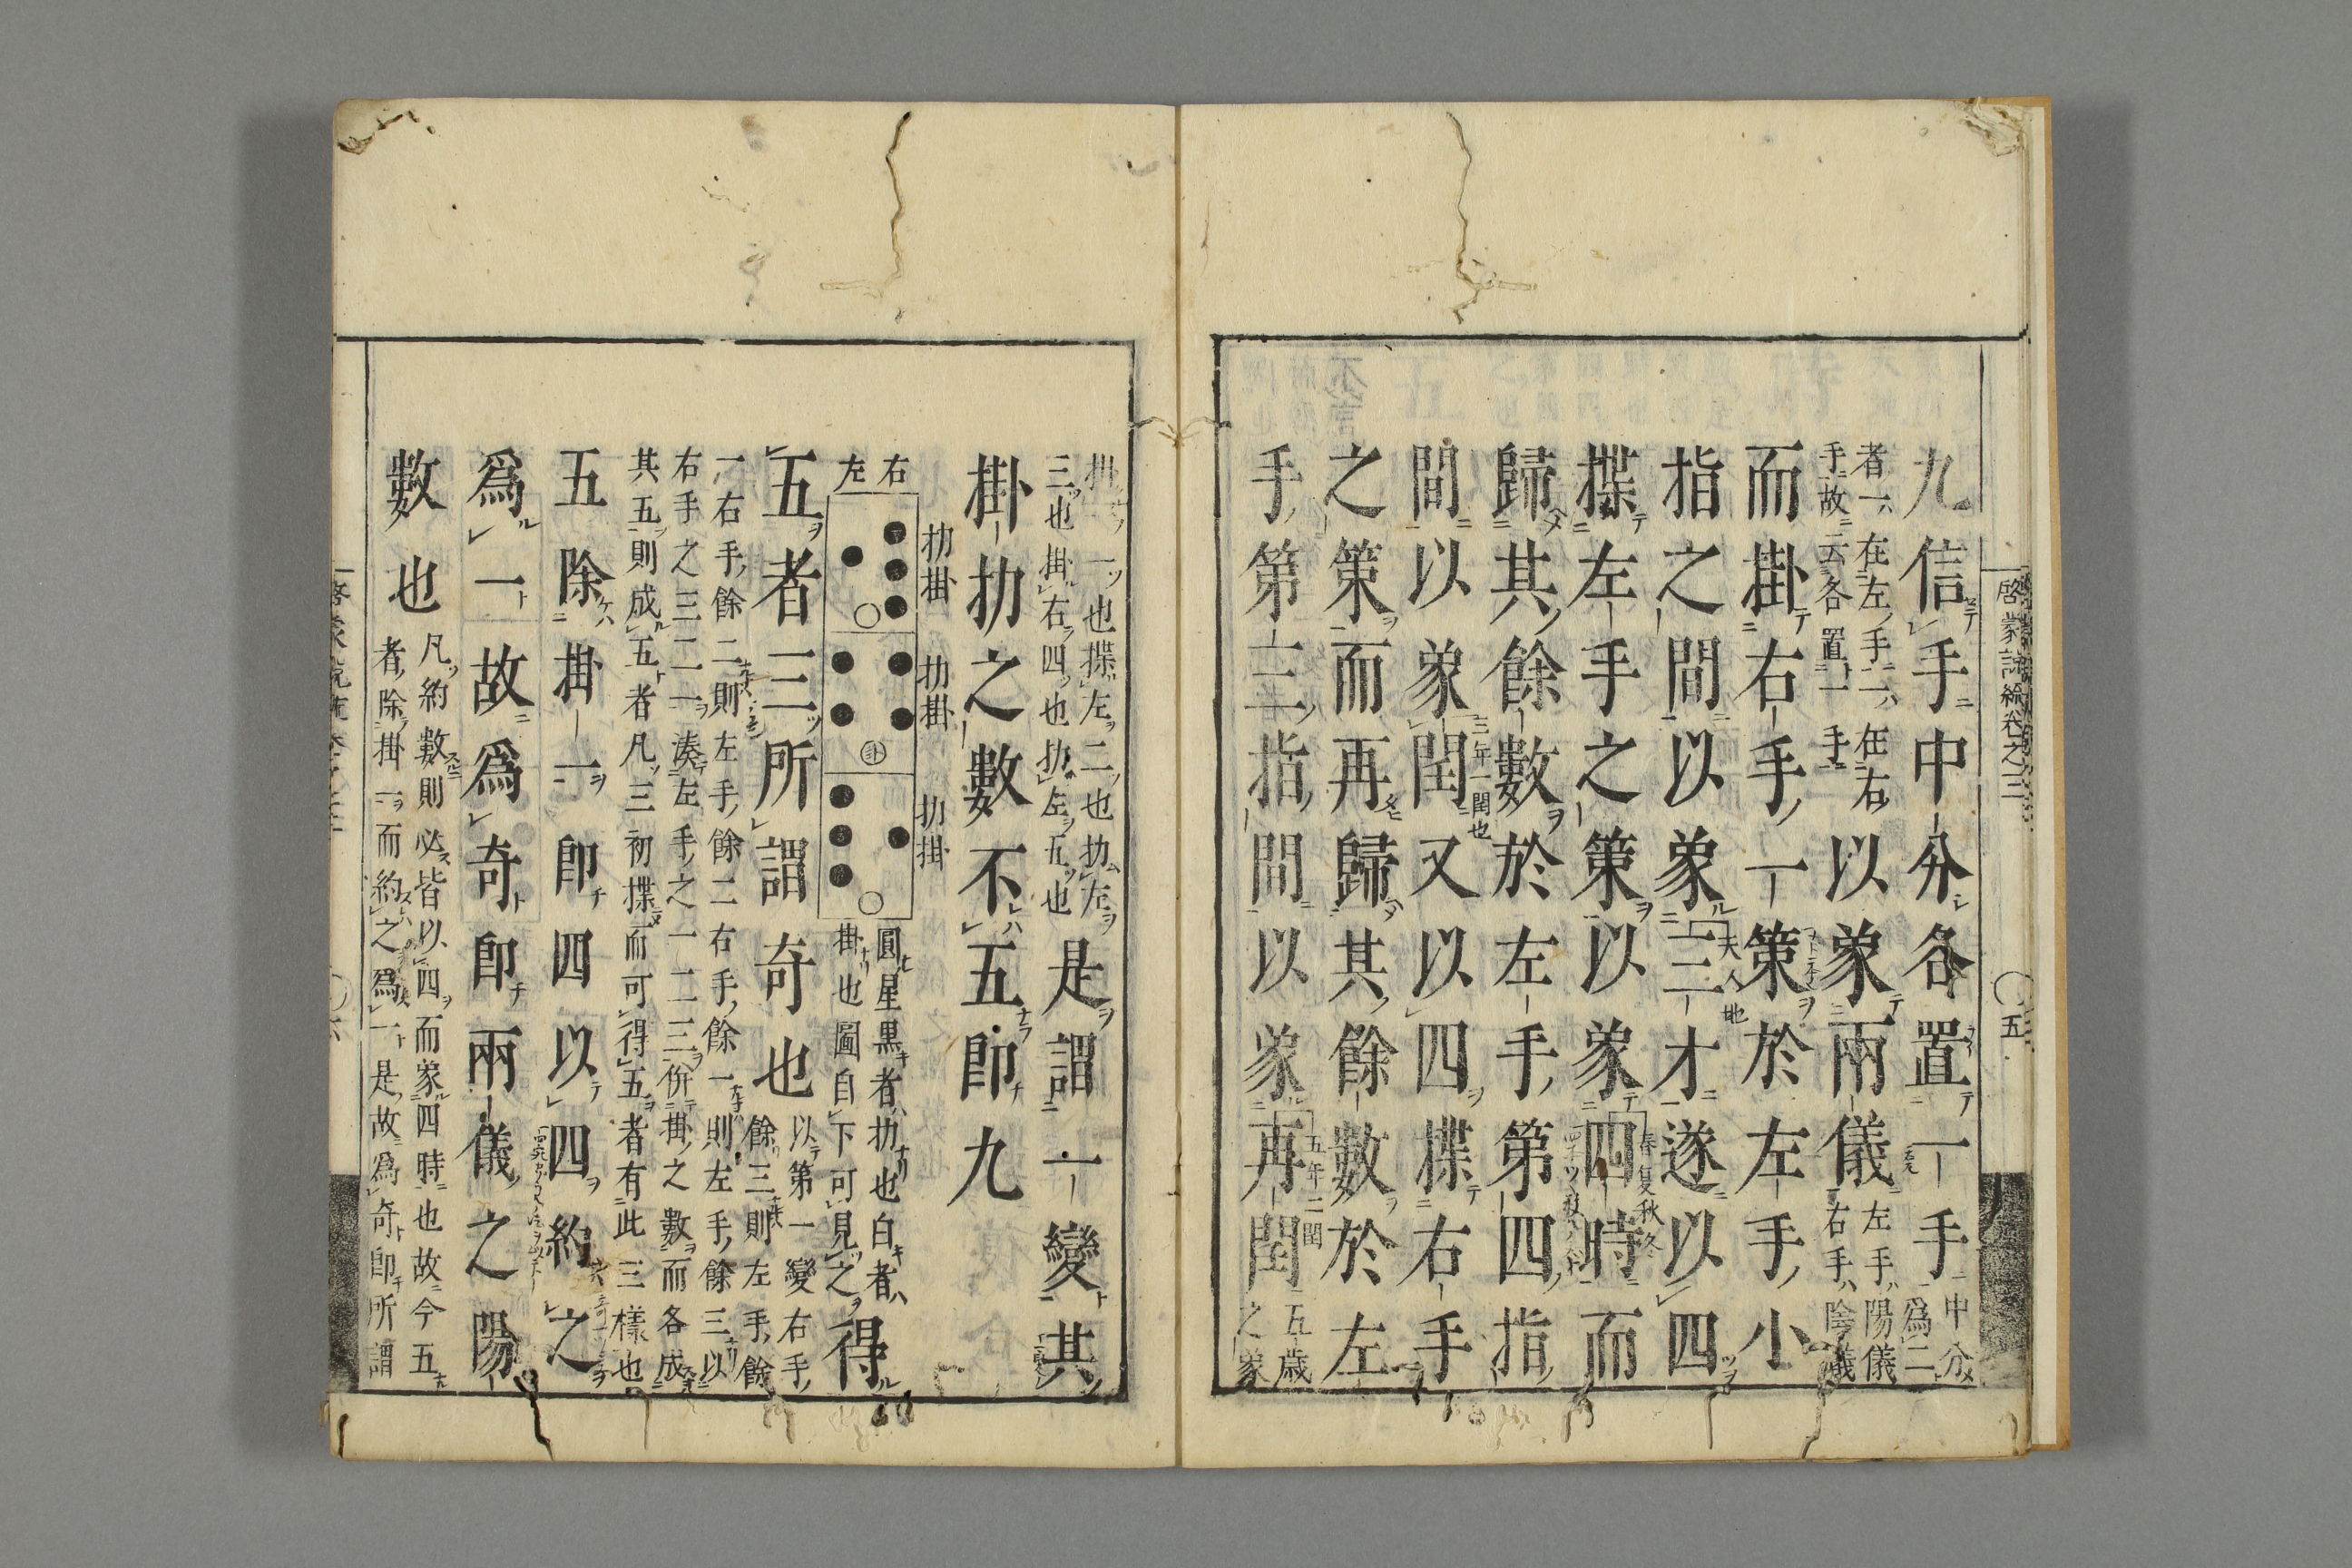 啓蒙諺編卷之三
五
九信手中分各置一手
中分
爲二
者一在左手一在右
手故云各置一手
以象兩儀
左手陽儀
右手陰儀
而掛右手一策於左手小
指之間以象三才遂以四
天人地
揲左手之策以象四時而
春夏秋冬
歸其餘數於左手第四指
間以象閏又以四揲右手
三年一閏也
之策而再歸其餘數於左
手第三指間以象再閏
五年二閏
五歳
之象
掛一一也揲左二也扐左
三也掛右四也扐左五也
是謂一變其
掛扐之數不五即九
右
左
扐掛
扐掛
扐掛
圓星黒者扐也白者
掛也圖自下可見之
得
五者三所謂奇也
以第一變右手
餘三則左手餘
一右手餘二則左手餘二右手餘一則左手餘三以
右手之三二一湊左手之一二三併掛之數而各成
其五則成五者凡三初揲而可得五者有此三樣也
五除掛一即四以四約之
爲一故爲奇即兩儀之陽
數也
凡約數則必皆以四而象四時也故今五
者除掛一而約之爲一是故爲奇即所謂